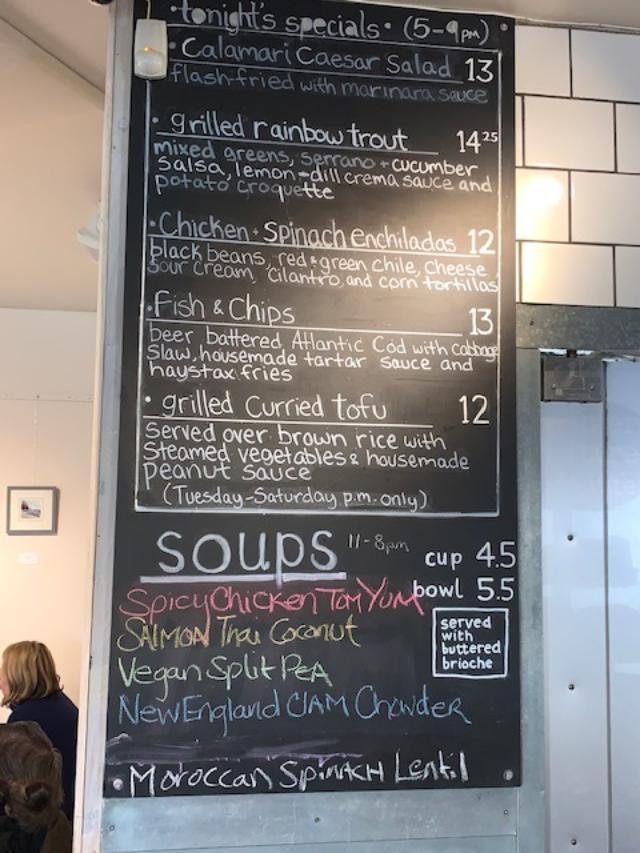 •tonight's specials• (5-9PM)
•Calamari Caesar Salad 13
flash-fried with marinara sauce
• grilled rainbow trout 14²⁵
mixed greens, serrano + cucumber
salsa, lemon-dill crema sauce and
potato croquette
•Chicken + Spinach Enchiladas 12
black beans, red + green chile, cheese
sour cream, cilantro, and corn tortillas
•Fish & Chips 13
beer battered, Atlantic Cod with cabbage
Slaw, housemade tartar sauce and
haystax fries
• grilled Curried tofu 12
Served over brown rice with
Steamed vegetables & housemade
peanut sauce
(Tuesday-Saturday p.m. only)
SOUPS 11-8pm cup 4.5
bowl 5.5
Spicy Chicken Tom Yum
SALMON Thai Coconut
Vegan Split PEA
New England ClAM Chowder
Moroccan Spinach Lentil
served
with
buttered
brioche